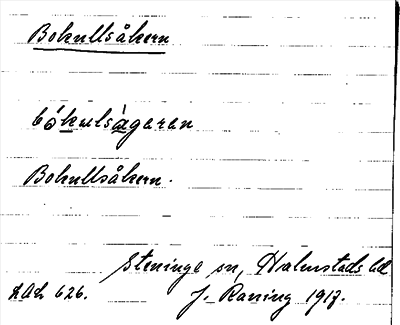 Bokullsåkern
bókulsàgaren
Bokullsåkern.
Steninge sn, Halmstads hd
LAL 626. J. Raning 1917.